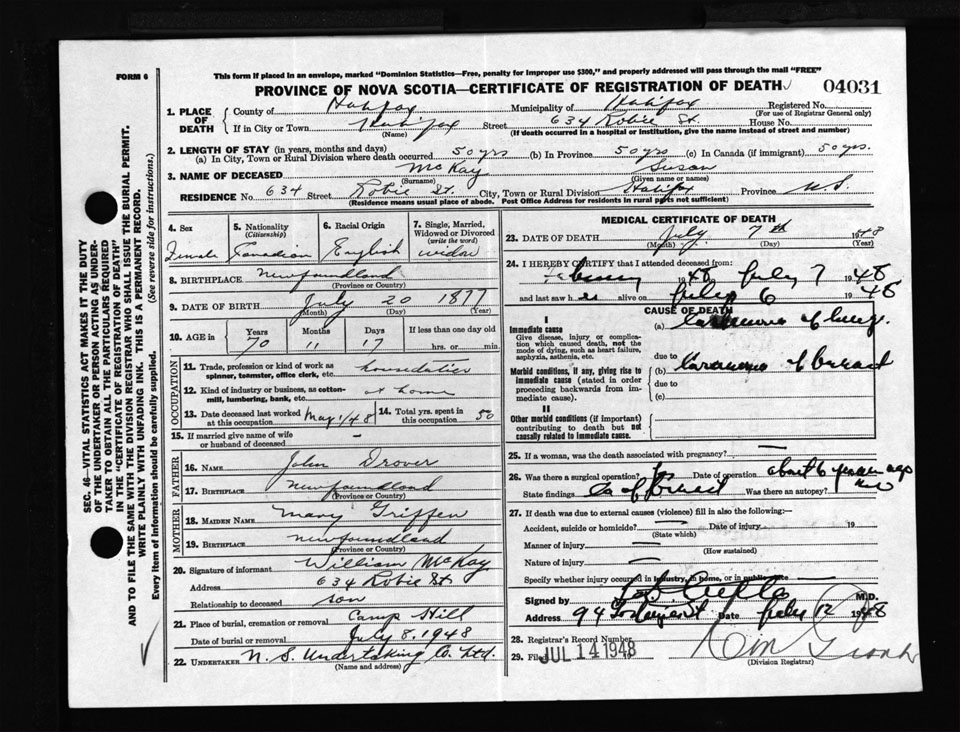 FORM 6
This form if placed in an envelope, marked "Dominion Statistics—Free, penalty for improper use $300," and properly addressed will pass through the mail "FREE"
PROVINCE OF NOVA SCOTIA—CERTIFICATE OF REGISTRATION OF DEATH 04031
1. PLACE OF DEATH County of Halifax Municipality of Halifax Registered No.
(For use of Registrar General only)
If in City or Town Halifax Street 634 Robie St. House No.
(Name) (If death occurred in a hospital or institution, give the name instead of street and number)
2. LENGTH OF STAY (in years, months and days)
(a) In City, Town or Rural Division where death occurred 50 yrs (b) In Province 50 yrs (c) In Canada (if immigrant) 50 yrs.
3. NAME OF DECEASED McKay Susan
(Surname) (Given name or names)
RESIDENCE No. 634 Street Robie St. City, Town or Rural Division Halifax Province N.S.
(Residence means usual place of abode. Post Office Address for residents in rural parts not sufficient)
4. Sex Female
5. Nationality (Citizenship) Canadian
6. Racial Origin English
7. Single, Married, Widowed or Divorced (write the word) widow
8. BIRTHPLACE Newfoundland
(Province or Country)
9. DATE OF BIRTH July 20 1877
(Month) (Day) (Year)
10. AGE in Years 70 Months 11 Days 17 If less than one day old
hrs. or min.
OCCUPATION
11. Trade, profession or kind of work as spinner, teamster, office clerk, etc. houseduties
12. Kind of industry or business, as cotton-mill, lumbering, bank, etc. at home
13. Date deceased last worked at this occupation May 1/48
14. Total yrs. spent in this occupation 50
15. If married give name of wife or husband of deceased —
FATHER
16. NAME John Drover
17. BIRTHPLACE Newfoundland
(Province or Country)
MOTHER
18. MAIDEN NAME Mary Griffen
19. BIRTHPLACE Newfoundland
(Province or Country)
20. Signature of informant William McKay
Address 634 Robie St
Relationship to deceased son
21. Place of burial, cremation or removal Camp Hill
Date of burial or removal July 8, 1948
22. UNDERTAKER N. S. Undertaking Co. Ltd.
(Name and address)
MEDICAL CERTIFICATE OF DEATH
23. DATE OF DEATH July 7th 1948
(Month) (Day) (Year)
24. I HEREBY CERTIFY that I attended deceased from:
1948 July 7 1948
and last saw her alive on July 6 1948
CAUSE OF DEATH
I
Immediate cause
Give disease, injury or complication which caused death, not the mode of dying, such as heart failure, asphyxia, asthenia, etc.
(a) Carcinoma of lung.
due to
Morbid conditions, if any, giving rise to immediate cause (stated in order proceeding backwards from immediate cause).
(b) Carcinoma of breast
due to
(c)
II
Other morbid conditions (if important) contributing to death but not causally related to immediate cause.
25. If a woman, was the death associated with pregnancy? —
26. Was there a surgical operation? Date of operation about 6 years ago
State findings Ca of breast Was there an autopsy? no
27. If death was due to external causes (violence) fill in also the following:—
Accident, suicide or homicide? — Date of injury 19
(State which)
Manner of injury —
(How sustained)
Nature of injury —
Specify whether injury occurred in industry, in home, or in public place
Signed by M.D.
Address Date July 12 1948
28. Registrar's Record Number
29. Filed JUL 14 1948
(Division Registrar)
SEC. 46—VITAL STATISTICS ACT MAKES IT THE DUTY
OF THE UNDERTAKER OR PERSON ACTING AS UNDER-
TAKER TO OBTAIN ALL THE PARTICULARS REQUIRED
IN THE "CERTIFICATE OF REGISTRATION OF DEATH"
AND TO FILE THE SAME WITH THE DIVISION REGISTRAR WHO SHALL ISSUE THE BURIAL PERMIT.
WRITE PLAINLY WITH UNFADING INK. THIS IS A PERMANENT RECORD.
Every item of information should be carefully supplied. (See reverse side for instructions.)